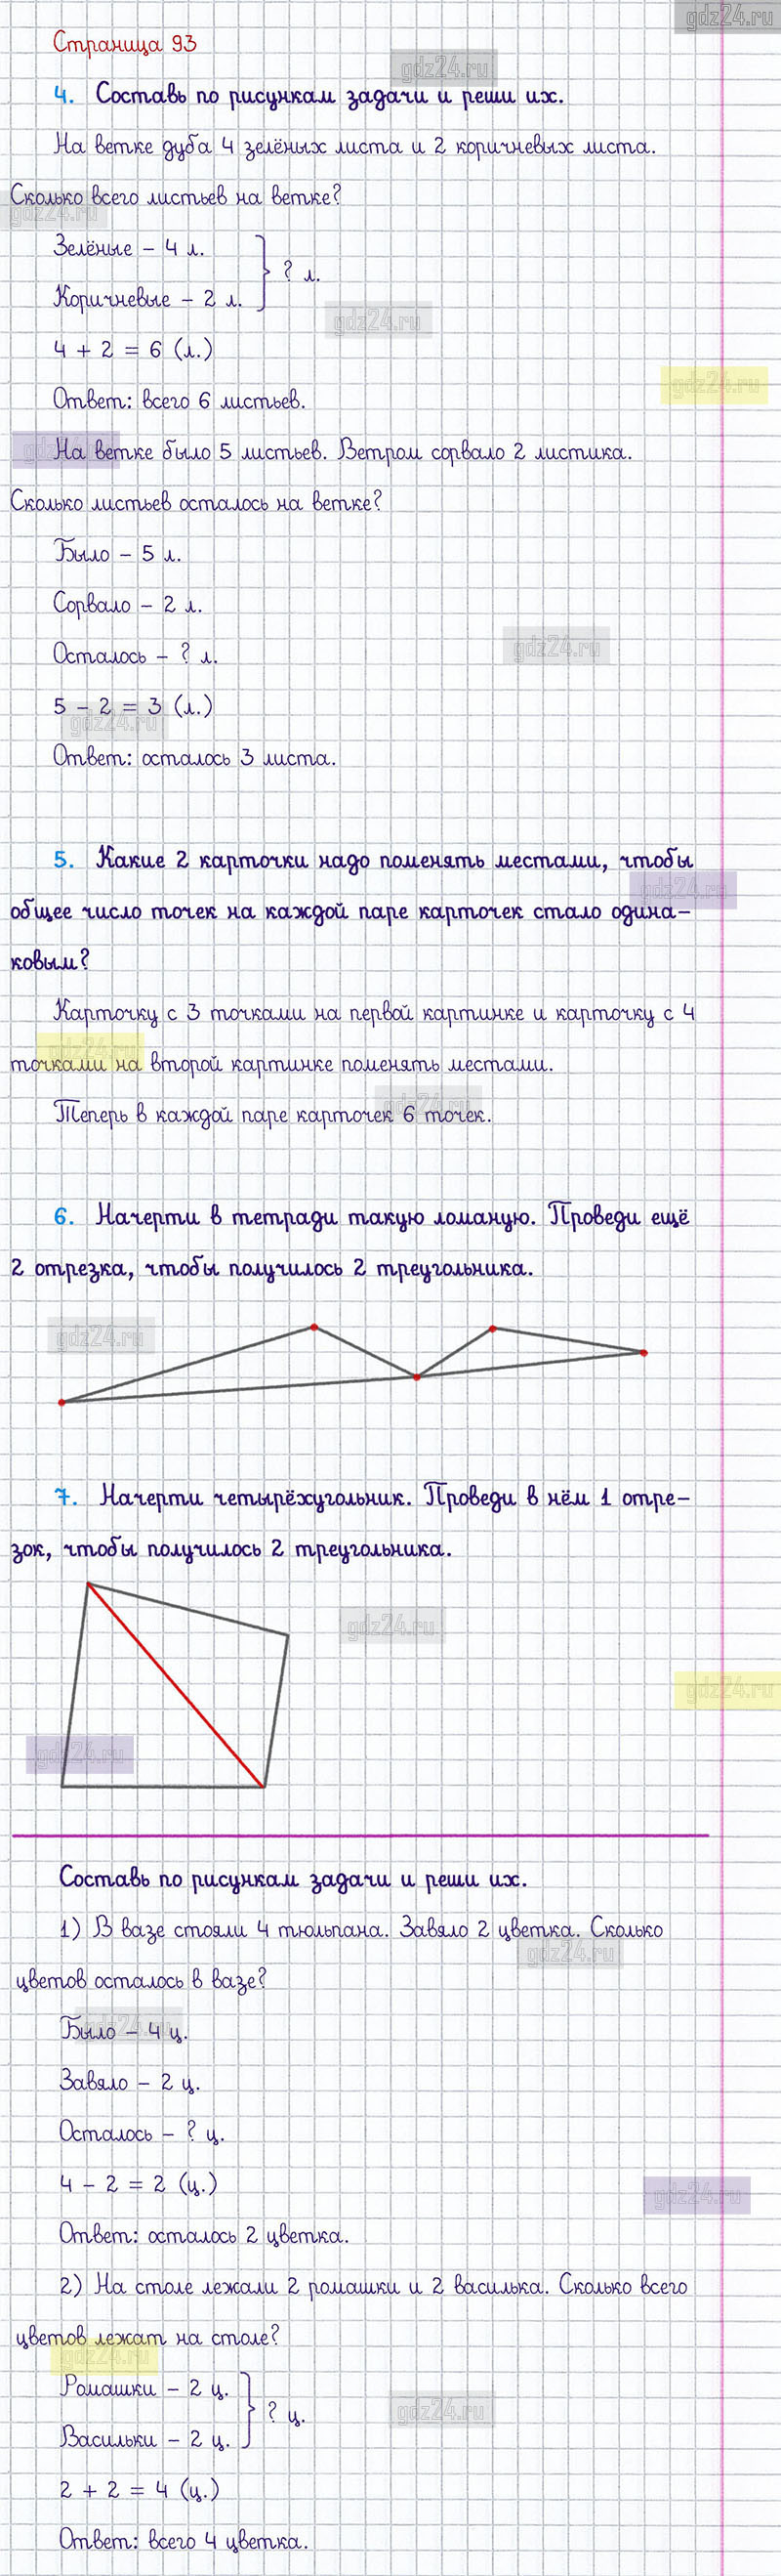 gdz24.ru
Страница 93
gdz24.ru
4. Составь по рисункам задачи и реши их.
На ветке дуба 4 зелёных листа и 2 коричневых листа.
Сколько всего листьев на ветке?
gdz24.ru
Зелёные – 4 л.
? л.
Коричневые – 2 л.
gdz24.ru
4 + 2 = 6 (л.)
gdz24.ru
Ответ: всего 6 листьев.
gdz24.ru
На ветке было 5 листьев. Ветром сорвало 2 листика.
Сколько листьев осталось на ветке?
Было – 5 л.
Сорвало – 2 л.
gdz24.ru
Осталось – ? л.
5 – 2 = 3 (л.)
gdz24.ru
Ответ: осталось 3 листа.
5. Какие 2 карточки надо поменять местами, чтобы
gdz24.ru
общее число точек на каждой паре карточек стало одина–
ковым?
Карточку с 3 точками на первой картинке и карточку с 4
gdz24.ru
точками на второй картинке поменять местами.
gdz24.ru
Теперь в каждой паре карточек 6 точек.
6. Начерти в тетради такую ломаную. Проведи ещё
2 отрезка, чтобы получилось 2 треугольника.
gdz24.ru
7. Начерти четырёхугольник. Проведи в нём 1 отре–
зок, чтобы получилось 2 треугольника.
gdz24.ru
gdz24.ru
gdz24.ru
Составь по рисункам задачи и реши их.
1) В вазе стояли 4 тюльпана. Завяло 2 цветка. Сколько
gdz24.ru
цветов осталось в вазе?
gdz24.ru
Было – 4 ц.
Завяло – 2 ц.
Осталось – ? ц.
4 – 2 = 2 (ц.)
gdz24.ru
Ответ: осталось 2 цветка.
2) На столе лежали 2 ромашки и 2 василька. Сколько всего
цветов лежат на столе?
gdz24.ru
Ромашки – 2 ц.
? ц.
gdz24.ru
Васильки – 2 ц.
2 + 2 = 4 (ц.)
Ответ: всего 4 цветка.